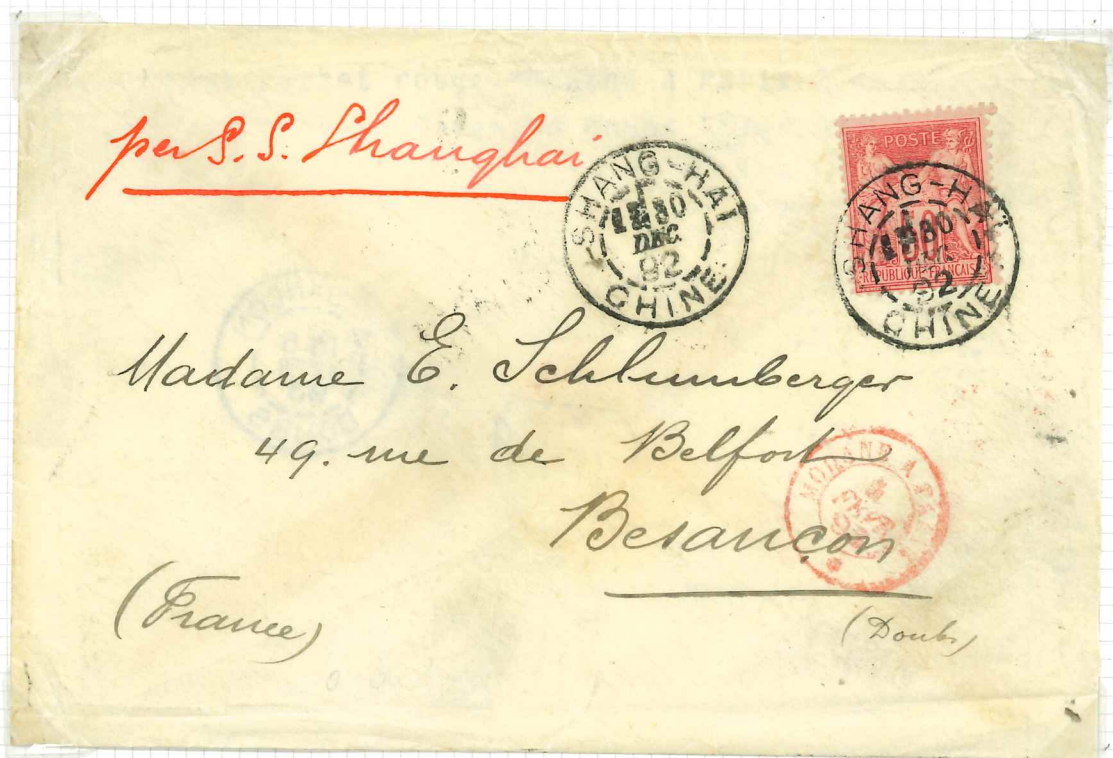 per S.S. Shanghai
SHANG-HAI
DEC
92
CHINE
POSTE
REPUBLIQUE FRANCAISE
SHANG-HAI
92
CHINE
Madame E. Schlumberger
49. rue de Belfort
Besançon
(France)
(Doubs)
MODANE A